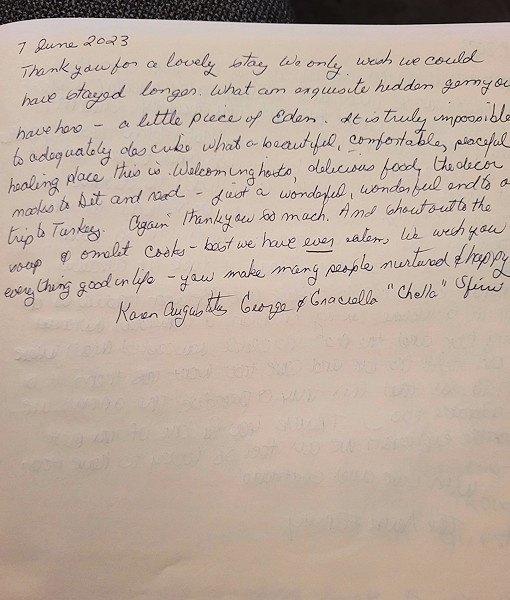 7 June 2023
Thank you for a lovely stay We only wish we could
have stayed longer. What an exquisite hidden gem you
have here - a little piece of Eden. It is truly impossible
to adequately describe what a beautiful, comfortable, peaceful
healing place this is. Welcoming hosts, delicious food, the decor
nooks to sit and read - just a wonderful, wonderful end to a
trip to Turkey. Again thank you so much. And shout out to the
soup & omelet cooks - best we have ever eaten, We wish you
everything good in life - you make many people nurtured & happy
Karen George & Graciella "Chella"